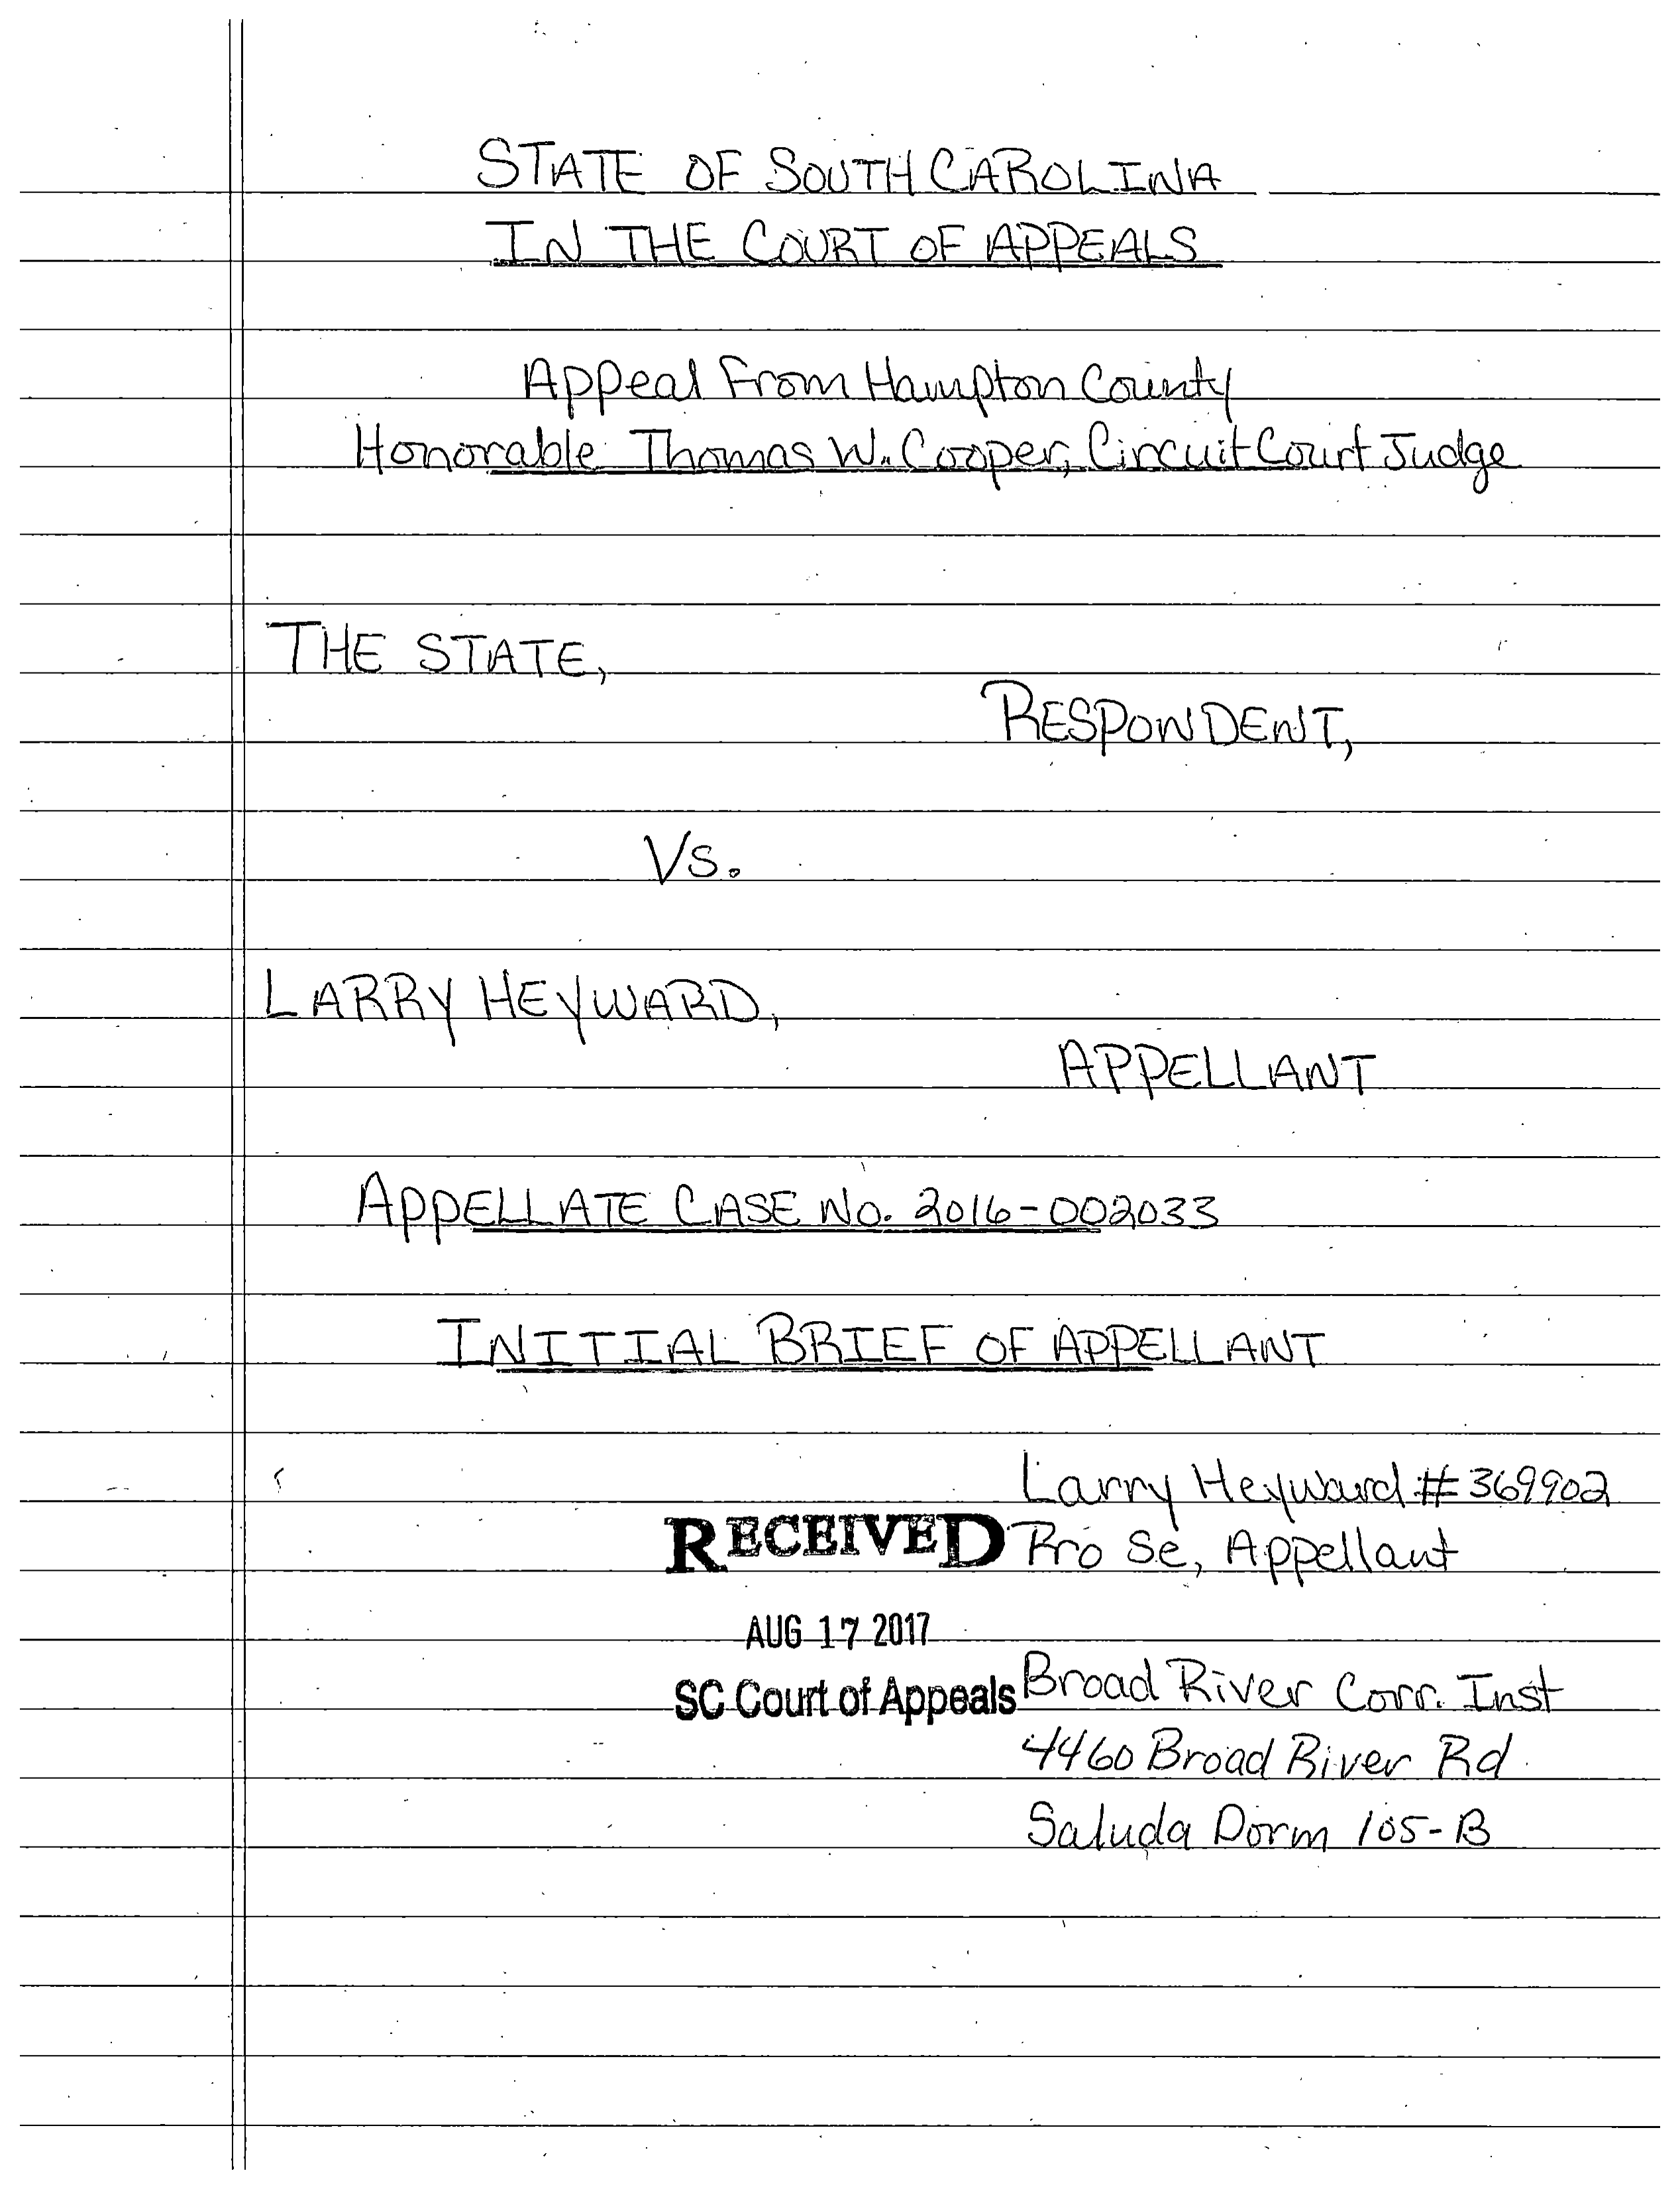 STATE OF SOUTH CAROLINA
IN THE COURT OF APPEALS
Appeal From Hampton County
Honorable Thomas W. Cooper, Circuit Court Judge
THE STATE,
RESPONDENT,
Vs.
LARRY HEYWARD,
APPELLANT
APPELLATE CASE No. 2016-002033
INITIAL BRIEF OF APPELLANT
Larry Heyward # 369902
RECEIVED Pro Se, Appellant
AUG 17 2017
SC Court of Appeals Broad River Corr. Inst
4460 Broad River Rd
Saluda Dorm 105-B